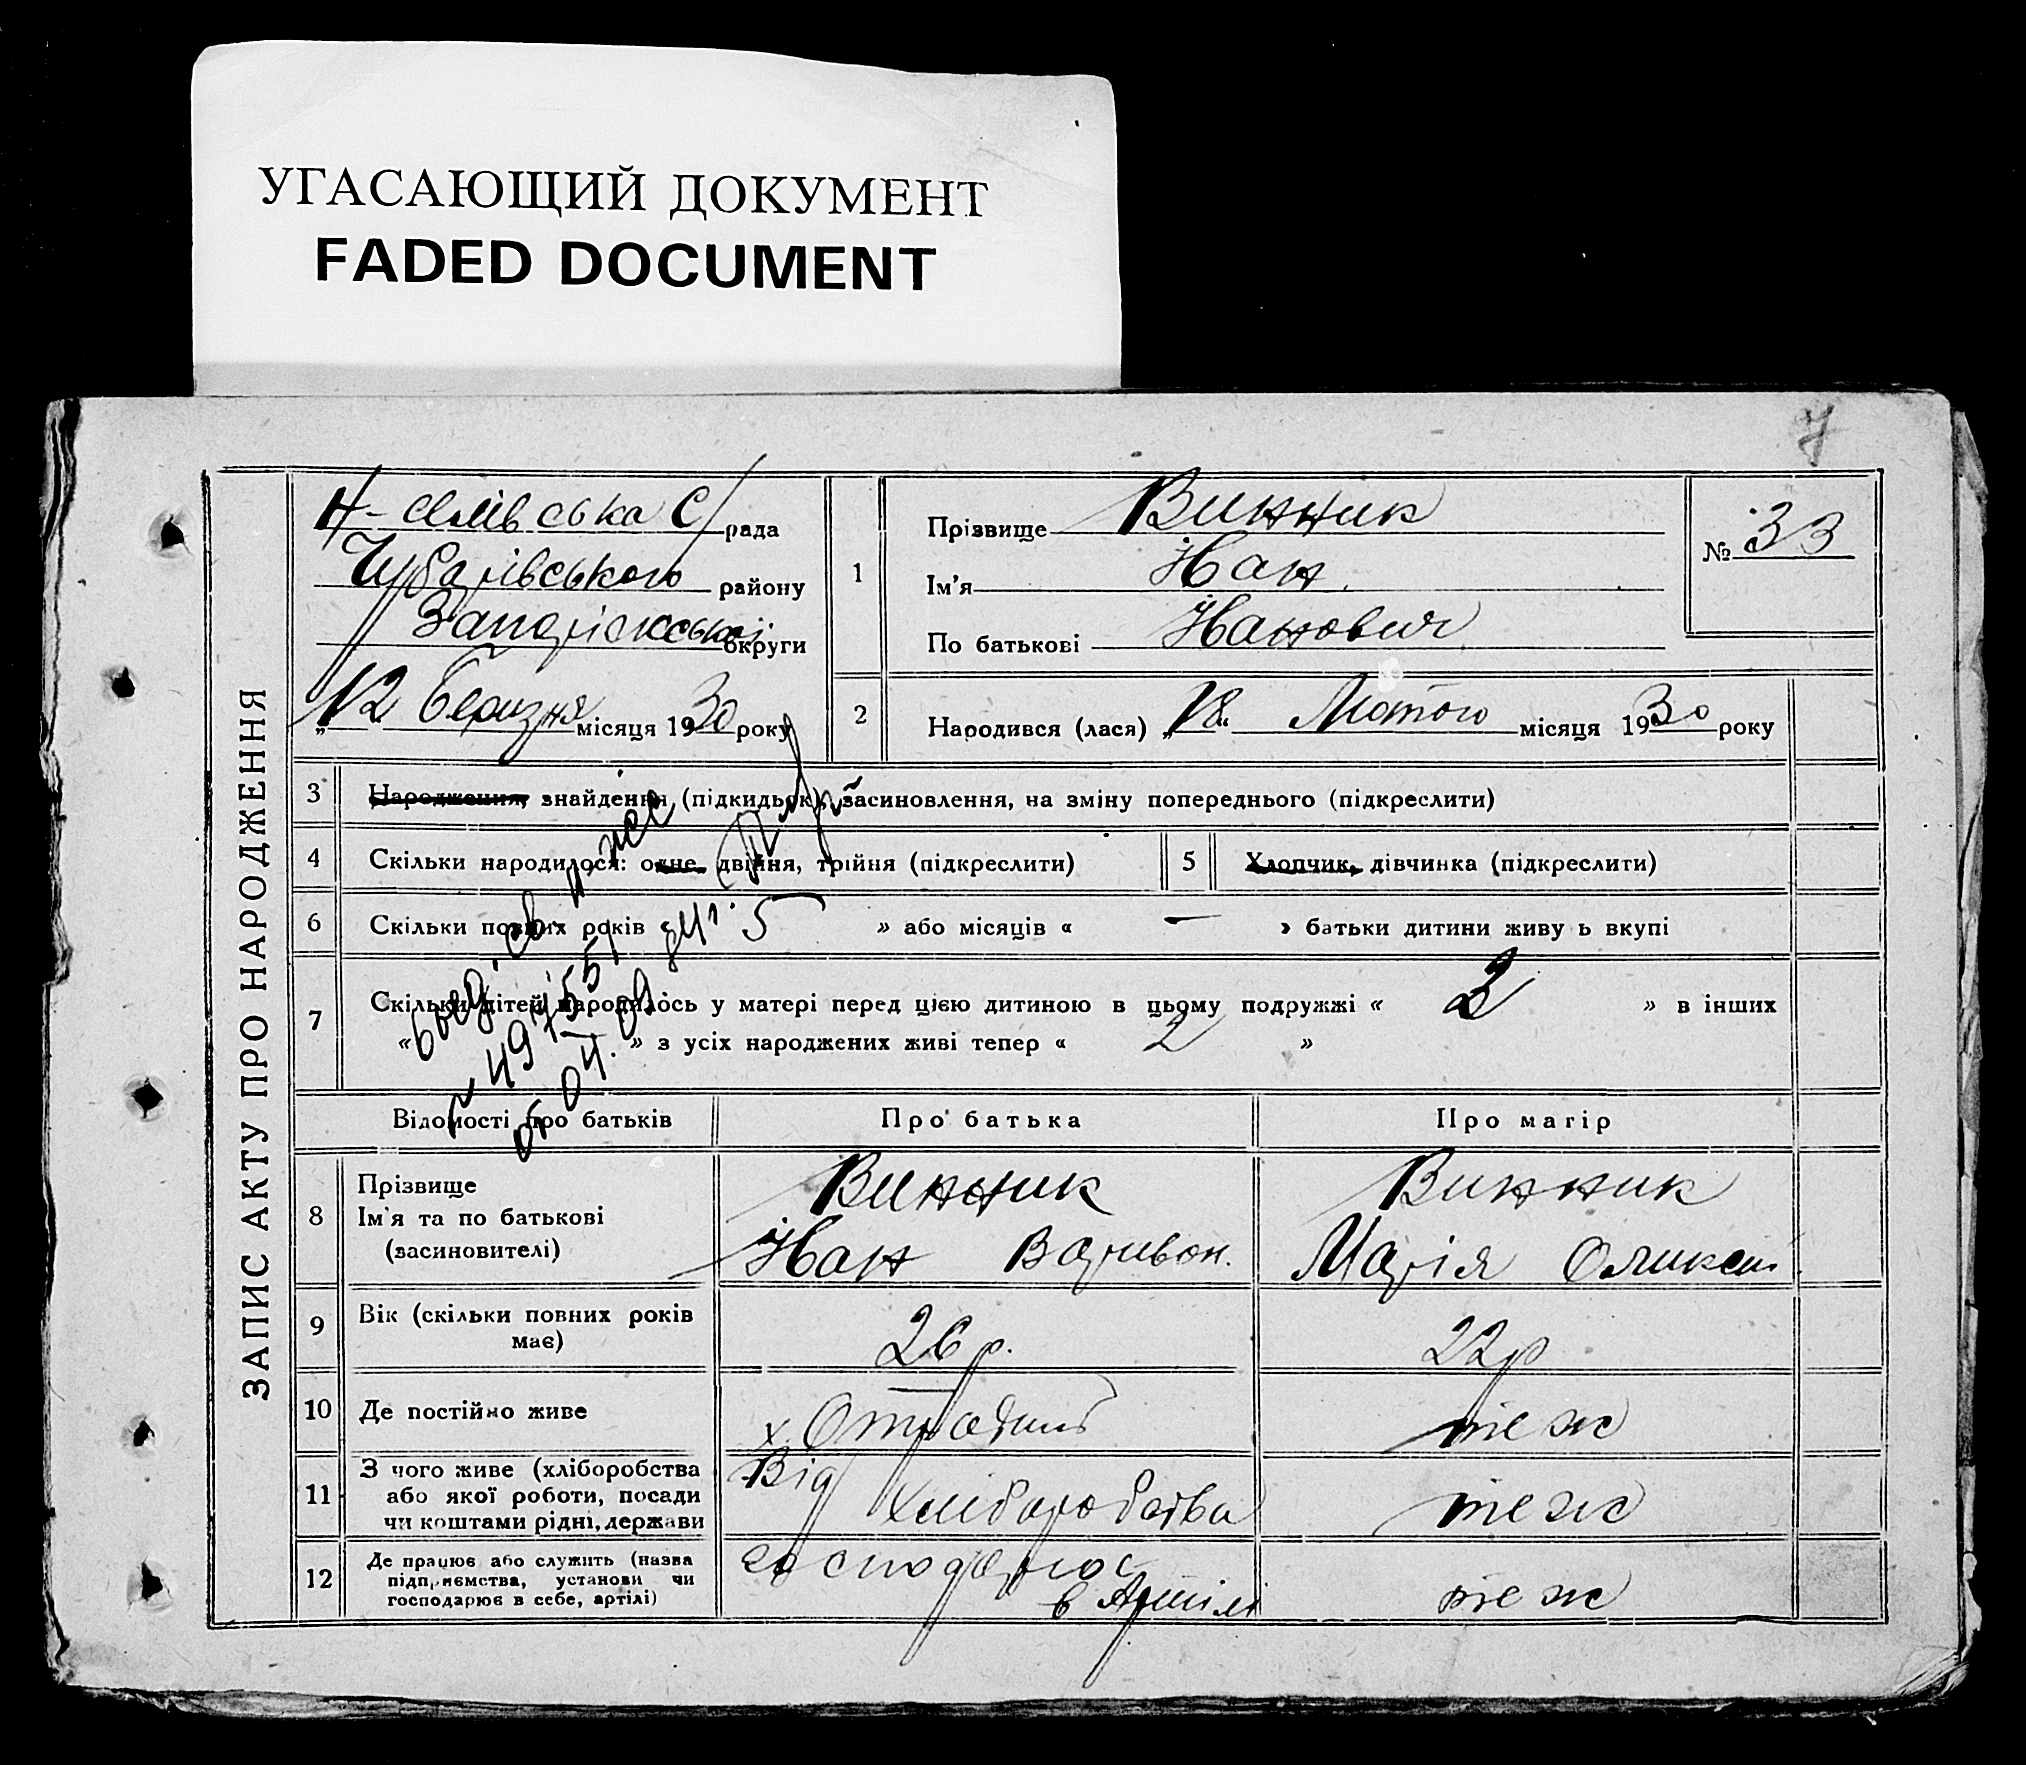 УГАСАЮЩИЙ ДОКУМЕНТ
FADED DOCUMENT
7
ЗАПИС АКТУ ПРО НАРОДЖЕННЯ
Н-селівська С/рада
Чубарівського району
Запоріжської округи
„12 Березня місяця 1930 року
1
Прізвище Винник
Ім'я Иван
По батькові Иванович
№ 33
2
Народився (лася) „18" Лютого місяця 1930 року
3
Народження, знайдення (підкидьок), засиновлення, на зміну попереднього (підкреслити)
4
Скільки народилося: одне, двійня, трійня (підкреслити)
5
Хлопчик, дівчинка (підкреслити)
6
Скільки повних років 5 » або місяців « — » батьки дитини живуть вкупі
7
Скільки дітей народилось у матері перед цією дитиною в цьому подружжі « 2 » в інших
« — » з усіх народжених живі тепер « 2 »
выд. св.
№ 497551
от 04.09
Відомості про батьків
Про батька
Про матір
8
Прізвище
Ім'я та по батькові
(засиновителі)
Винник
Иван Вариван.
Винник
Марія Оликсеи.
9
Вік (скільки повних років
має)
26 р.
22 р
10
Де постійно живе
х. Отрадний
теж
11
З чого живе (хліборобства
або якої роботи, посади
чи коштами рідні, держави
Від
хліборобства
теж
12
Де працює або служить (назва
підприємства, установи чи
господарює в себе, артілі)
господарює
в Артілі
теж